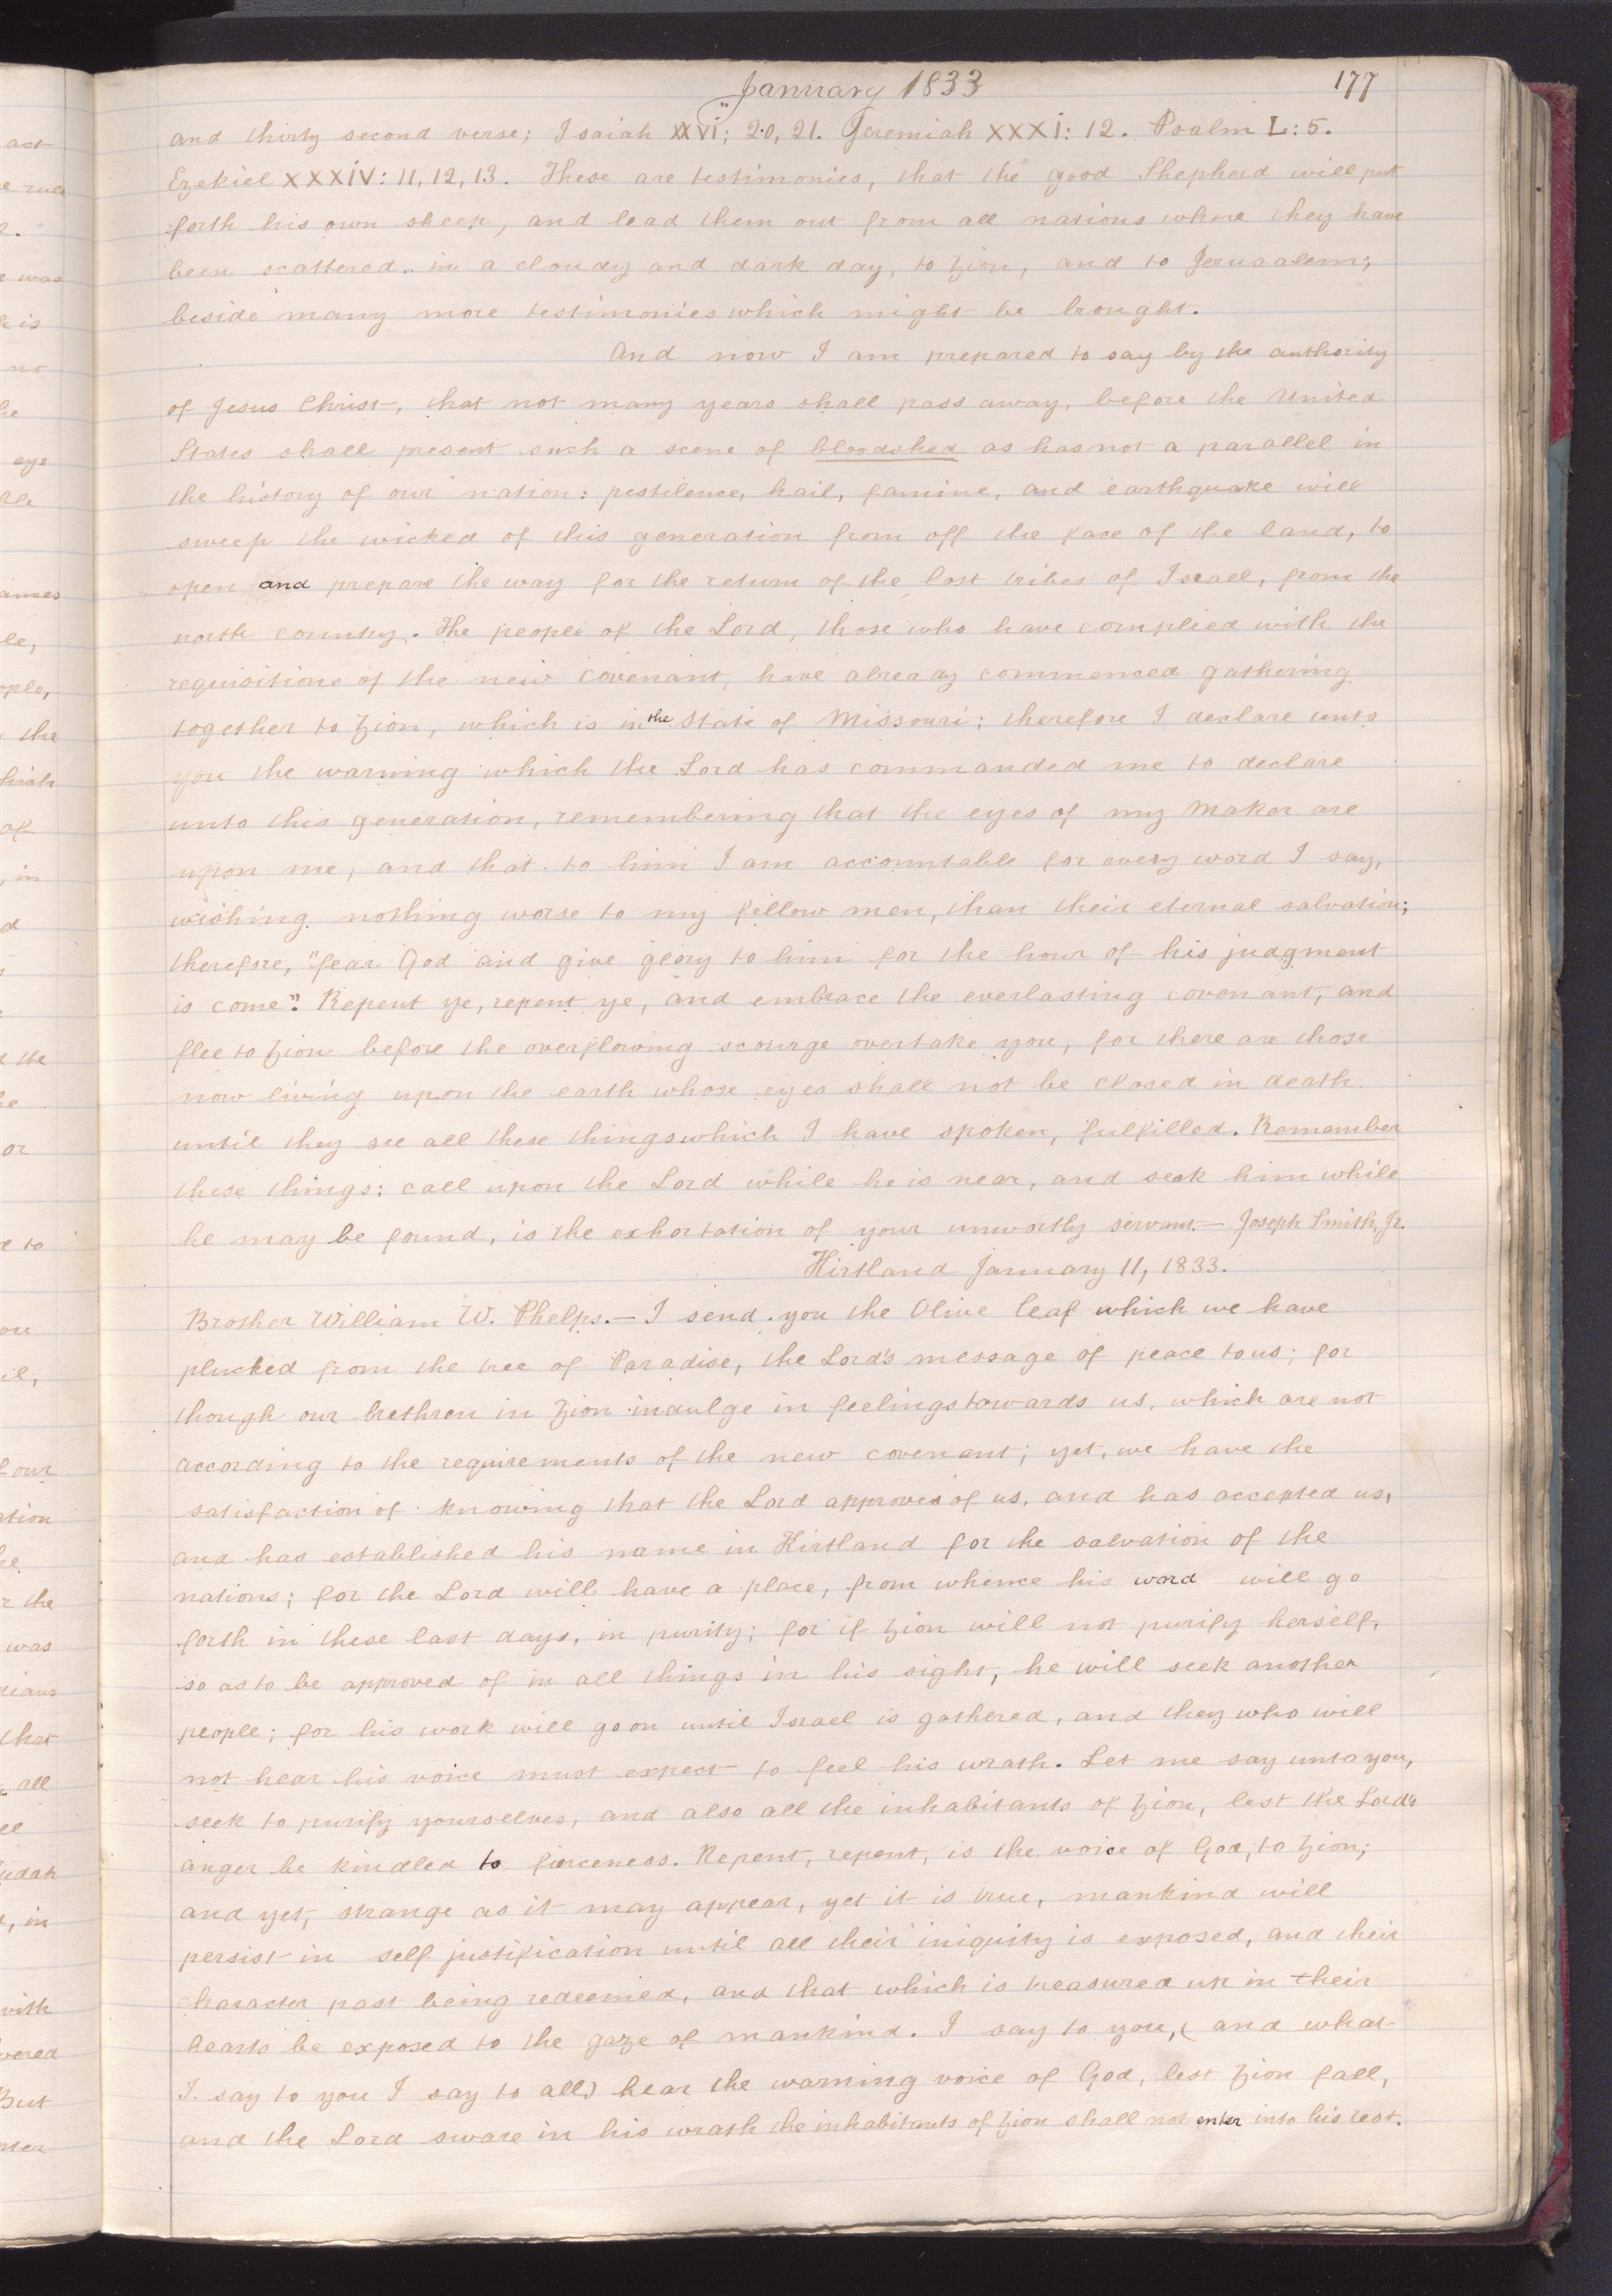 January 1833
177
and thirty second verse; Isaiah XXVI; 20, 21. Jeremiah XXXI: 12. Psalm L: 5.
Ezekiel XXXIV: 11, 12, 13. These are testimonies, that the good Shepherd will put
forth his own sheep, and lead them out from all nations where they have
been scattered in a cloudy and dark day, to Zion, and to Jerusalem;
beside many more testimonies which might be brought.
And now I am prepared to say by the authority
of Jesus Christ, that not many years shall pass away, before the United
States shall present such a scene of bloodshed as has not a parallel in
the history of our nation: pestilence, hail, famine, and earthquake will
sweep the wicked of this generation from off the face of the land, to
open and prepare the way for the return of the lost tribes of Israel, from the
north country. The people of the Lord, those who have complied with the
requisitions of the new covenant, have already commenced gathering
together to Zion, which is in the State of Missouri; therefore I declare unto
you the warning which the Lord has commanded me to declare
unto this generation, remembering that the eyes of my Maker are
upon me, and that to him I am accountable for every word I say,
wishing nothing worse to my fellow men, than their eternal salvation;
therefore, "fear God and give glory to him for the hour of his judgment
is come". Repent ye, repent ye, and embrace the everlasting covenant, and
flee to Zion before the overflowing scourge overtake you, for there are those
now living upon the earth whose eyes shall not be closed in death
until they see all these things which I have spoken, fulfilled. Remember
these things; call upon the Lord while he is near, and seek him while
he may be found, is the exhortation of your unworthy servant.— Joseph Smith, Jr.
Kirtland January 11, 1833.
Brother William W. Phelps.— I send you the Olive leaf which we have
plucked from the tree of Paradise, the Lord's message of peace to us; for
though our brethren in Zion indulge in feelings towards us, which are not
according to the requirements of the new covenant; yet, we have the
satisfaction of knowing that the Lord approves of us, and has accepted us,
and has established his name in Kirtland for the salvation of the
nations; for the Lord will have a place, from whence his word will go
forth in these last days, in purity; for if Zion will not purify herself,
so as to be approved of in all things in his sight, he will seek another
people; for his work will go on until Israel is gathered, and they who will
not hear his voice must expect to feel his wrath. Let me say unto you,
seek to purify yourselves, and also all the inhabitants of Zion, lest the Lord's
anger be kindled to fierceness. Repent, repent, is the voice of God, to Zion;
and yet, strange as it may appear, yet it is true, mankind will
persist in self justification until all their iniquity is exposed, and their
character past being redeemed, and that which is treasured up in their
hearts be exposed to the gaze of mankind. I say to you, (and what
I say to you I say to all) hear the warning voice of God, lest Zion fall,
and the Lord sware in his wrath the inhabitants of Zion shall not enter into his rest.